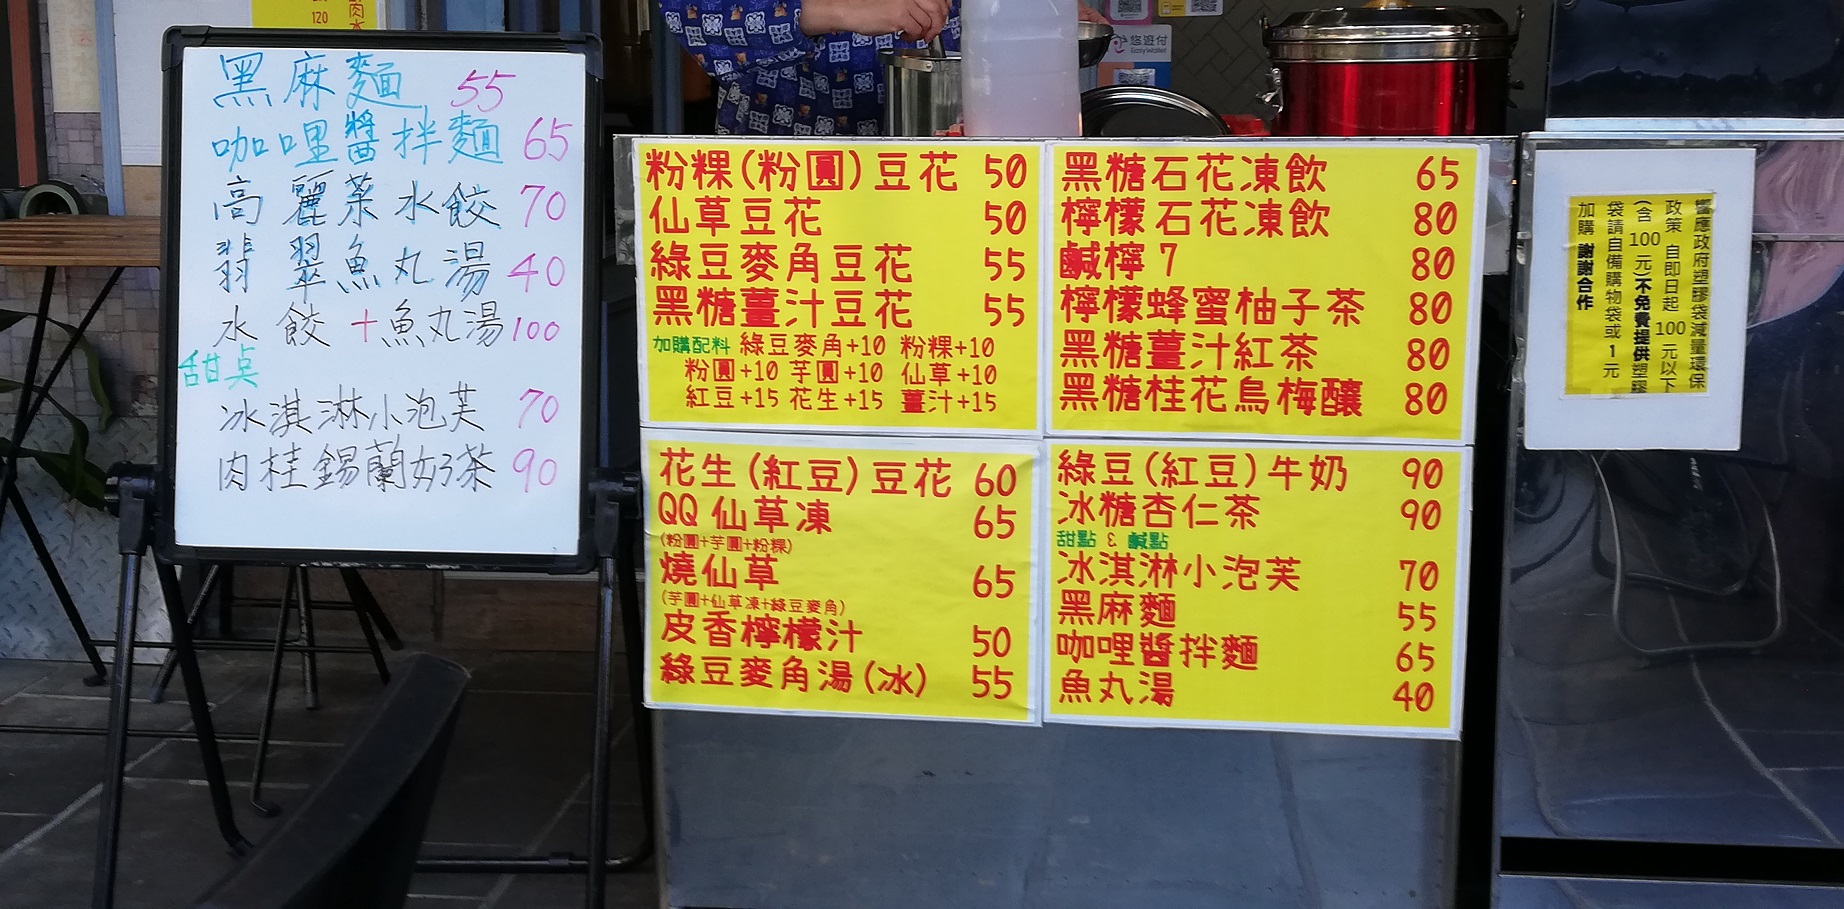 肉水
120
黑麻麵 55
咖哩醬拌麵 65
高麗菜水餃 70
翡翠魚丸湯 40
水餃+魚丸湯 100
甜點
冰淇淋小泡芙 70
肉桂錫蘭奶茶 90
悠遊付
EasyWallet
粉粿(粉圓)豆花 50
仙草豆花 50
綠豆麥角豆花 55
黑糖薑汁豆花 55
加購配料 綠豆麥角+10 粉粿+10
粉圓+10 芋圓+10 仙草+10
紅豆+15 花生+15 薑汁+15
花生(紅豆)豆花 60
QQ仙草凍 65
(粉圓+芋圓+粉粿)
燒仙草 65
(芋圓+仙草凍+綠豆麥角)
皮香檸檬汁 50
綠豆麥角湯(冰) 55
黑糖石花凍飲 65
檸檬石花凍飲 80
鹹檸7 80
檸檬蜂蜜柚子茶 80
黑糖薑汁紅茶 80
黑糖桂花烏梅釀 80
綠豆(紅豆)牛奶 90
冰糖杏仁茶 90
甜點 & 鹹點
冰淇淋小泡芙 70
黑麻麵 55
咖哩醬拌麵 65
魚丸湯 40
響應政府塑膠袋減量環保
政策 自即日起 100 元以下
(含 100 元)不免費提供塑膠
袋請自備購物袋或 1 元
加購 謝謝合作